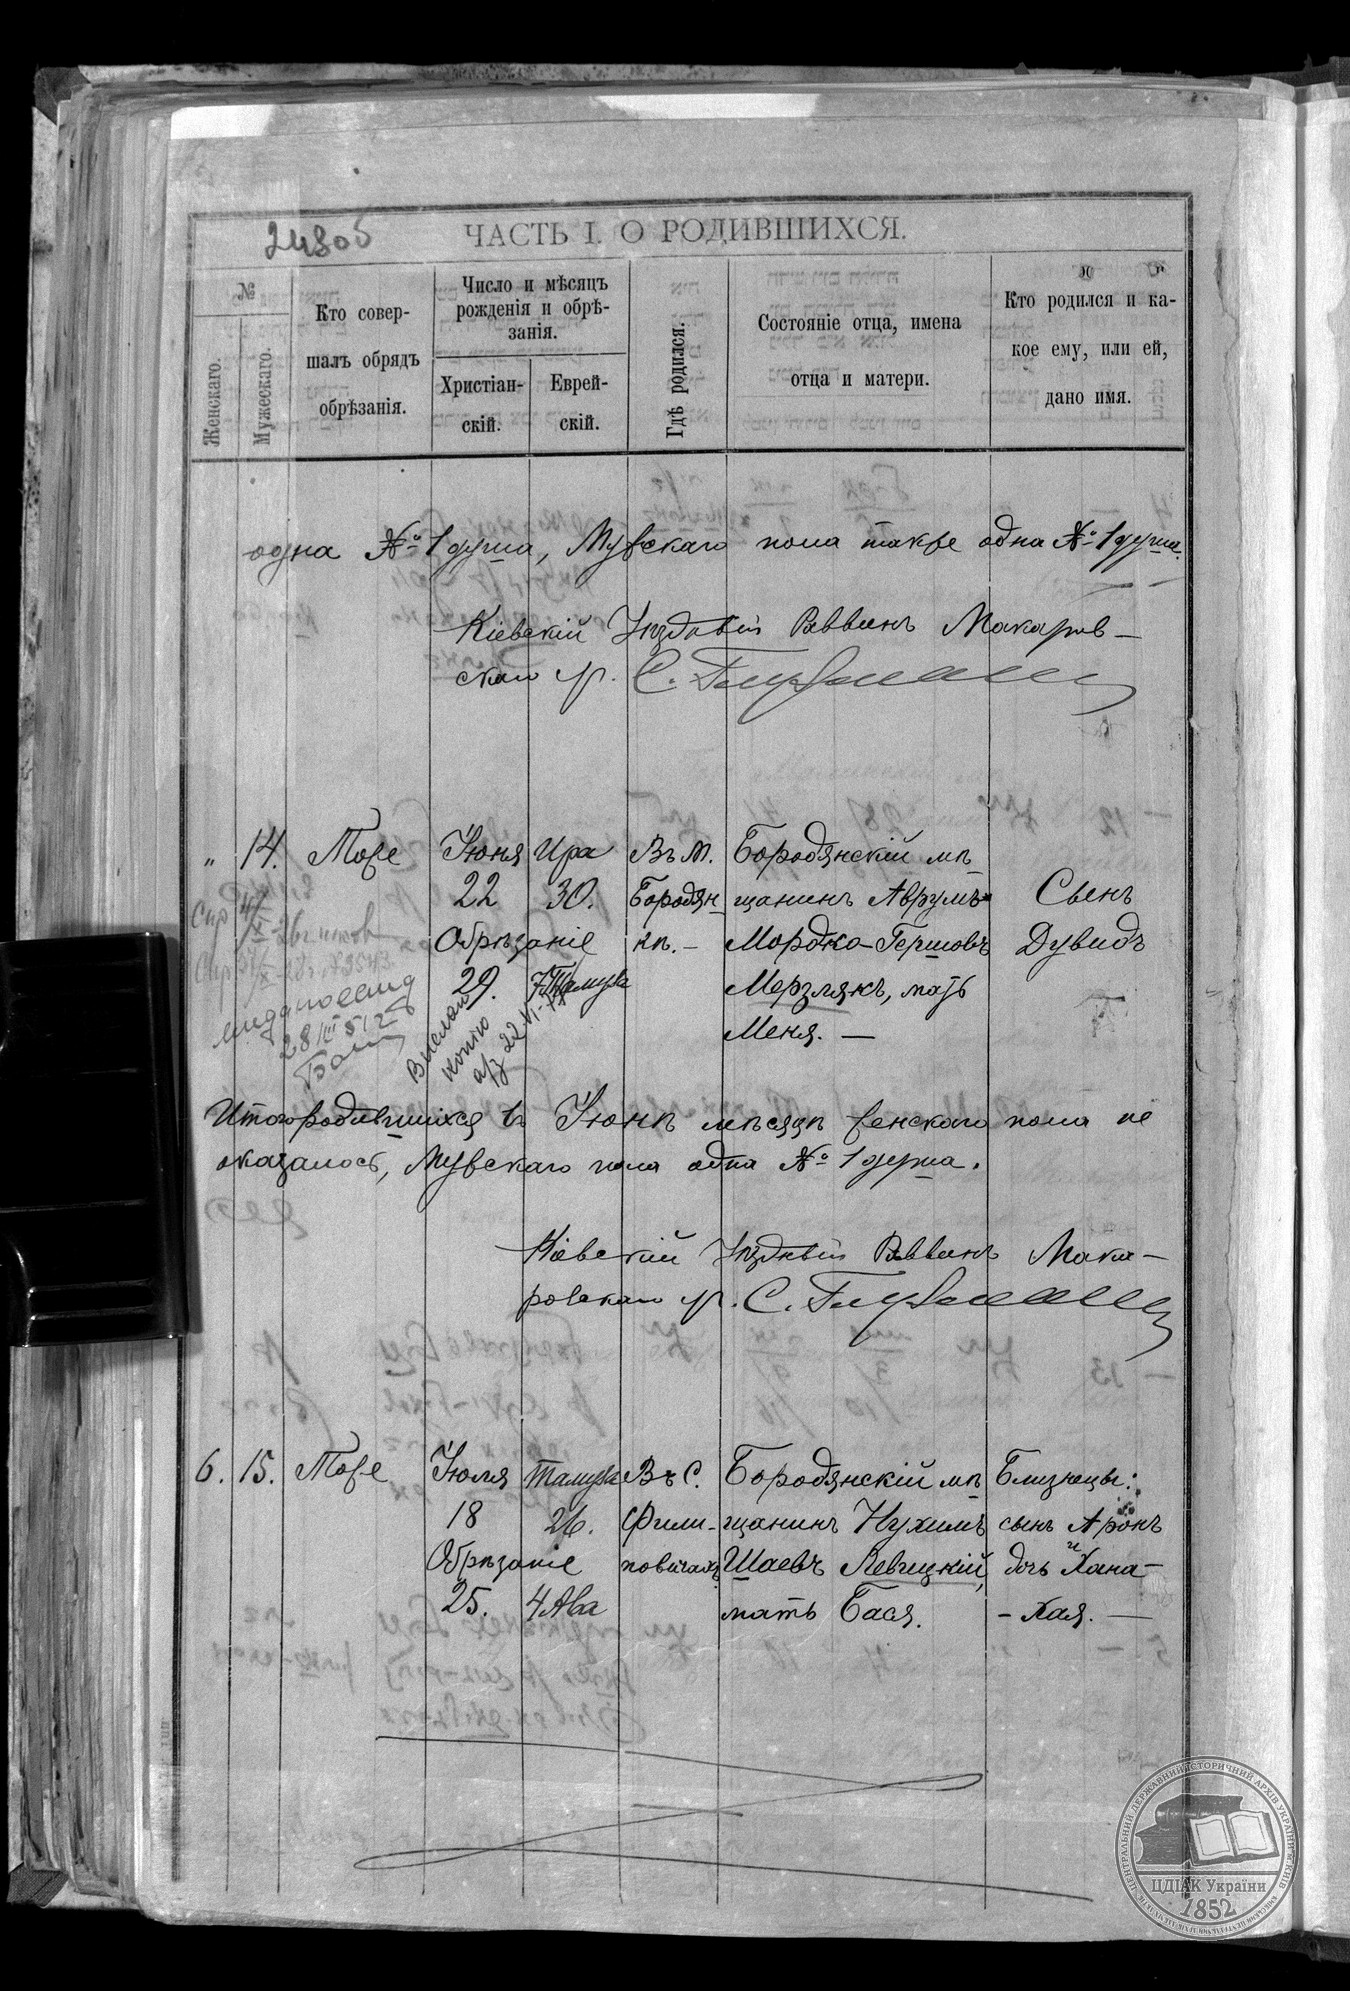 24305
ЧАСТЬ I. О РОДИВШИХСЯ.
№
Женскаго.
Мужескаго.
Кто совер-
шалъ обрядъ
обрѣзанія.
Число и мѣсяцъ
рожденія и обрѣ-
занія.
Христіан-
скій.
Еврей-
скій.
Гдѣ родился.
Состояніе отца, имена
отца и матери.
Кто родился и ка-
кое ему, или ей,
дано имя.
одна № 1 душа, Мужскаго пола также одна № 1 душа.
Кіевскій Уѣздный Раввинъ Макаров-
скаго р.
" 14. Тоже Іюня 22 Обрѣзаніе 29.
30. 7 Тамуза
Въ М. Бородян-
кѣ. -
Бородянскій мѣ-
щанинъ Аврумъ-
Мордко-Гершовъ
Мерзлякъ, мать
Меня. —
Сынъ
Дувидъ
Выслано
копію
22
28 III 512
Итого родившихся въ Іюнѣ мѣсяцѣ женскаго пола не
оказалось, Мужскаго пола одна № 1 душа.
Кіевскій Уѣздный Раввинъ Мака-
ровскаго р.
6. 15. Тоже Іюля 18 Обрѣзаніе 25.
Тамуза 26. 4 Ава
Въ С. Фили-
повичахъ
Бородянскій мѣ-
щанинъ Нухимъ
Шаевъ Левицкій,
мать Бася.
Близнецы:
сынъ Аронъ
и
дочь Хана-
- Хая. —
ЦЕНТРАЛЬНИЙ ДЕРЖАВНИЙ ІСТОРИЧНИЙ АРХІВ УКРАЇНИ, М. КИЇВ
ЦДІАК України
1852